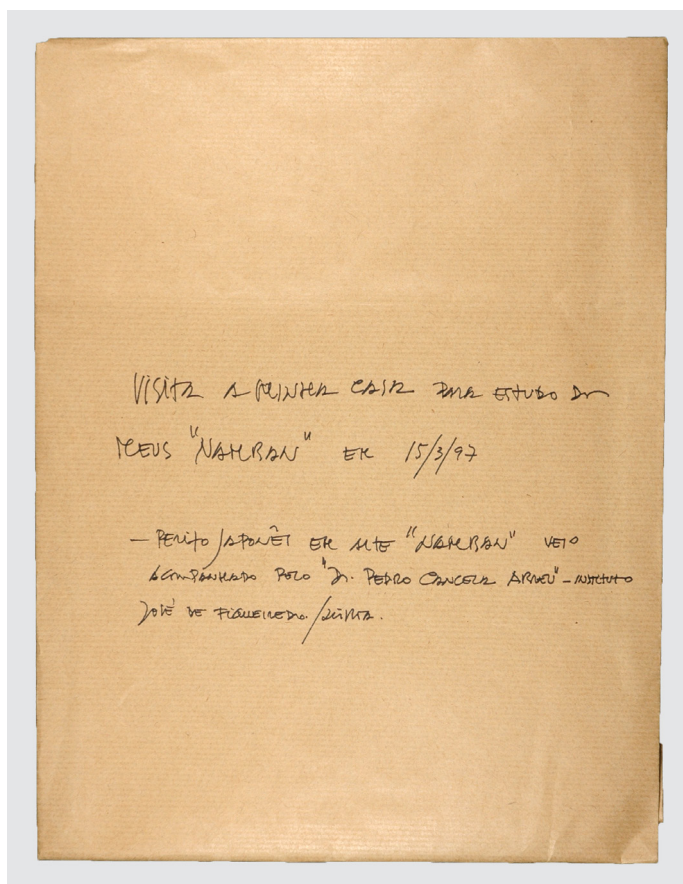 VISITA A MINHA CASA PARA ESTUDO DOS
MEUS "NAMBAN" EM 15/3/97
— PERITO JAPONÊS EM ARTE "NAMBAN" VEIO
ACOMPANHADO PELO "Dr. PEDRO CANCELA ABREU" – INSTITUTO
JOSÉ DE FIGUEIREDO/LISBOA.